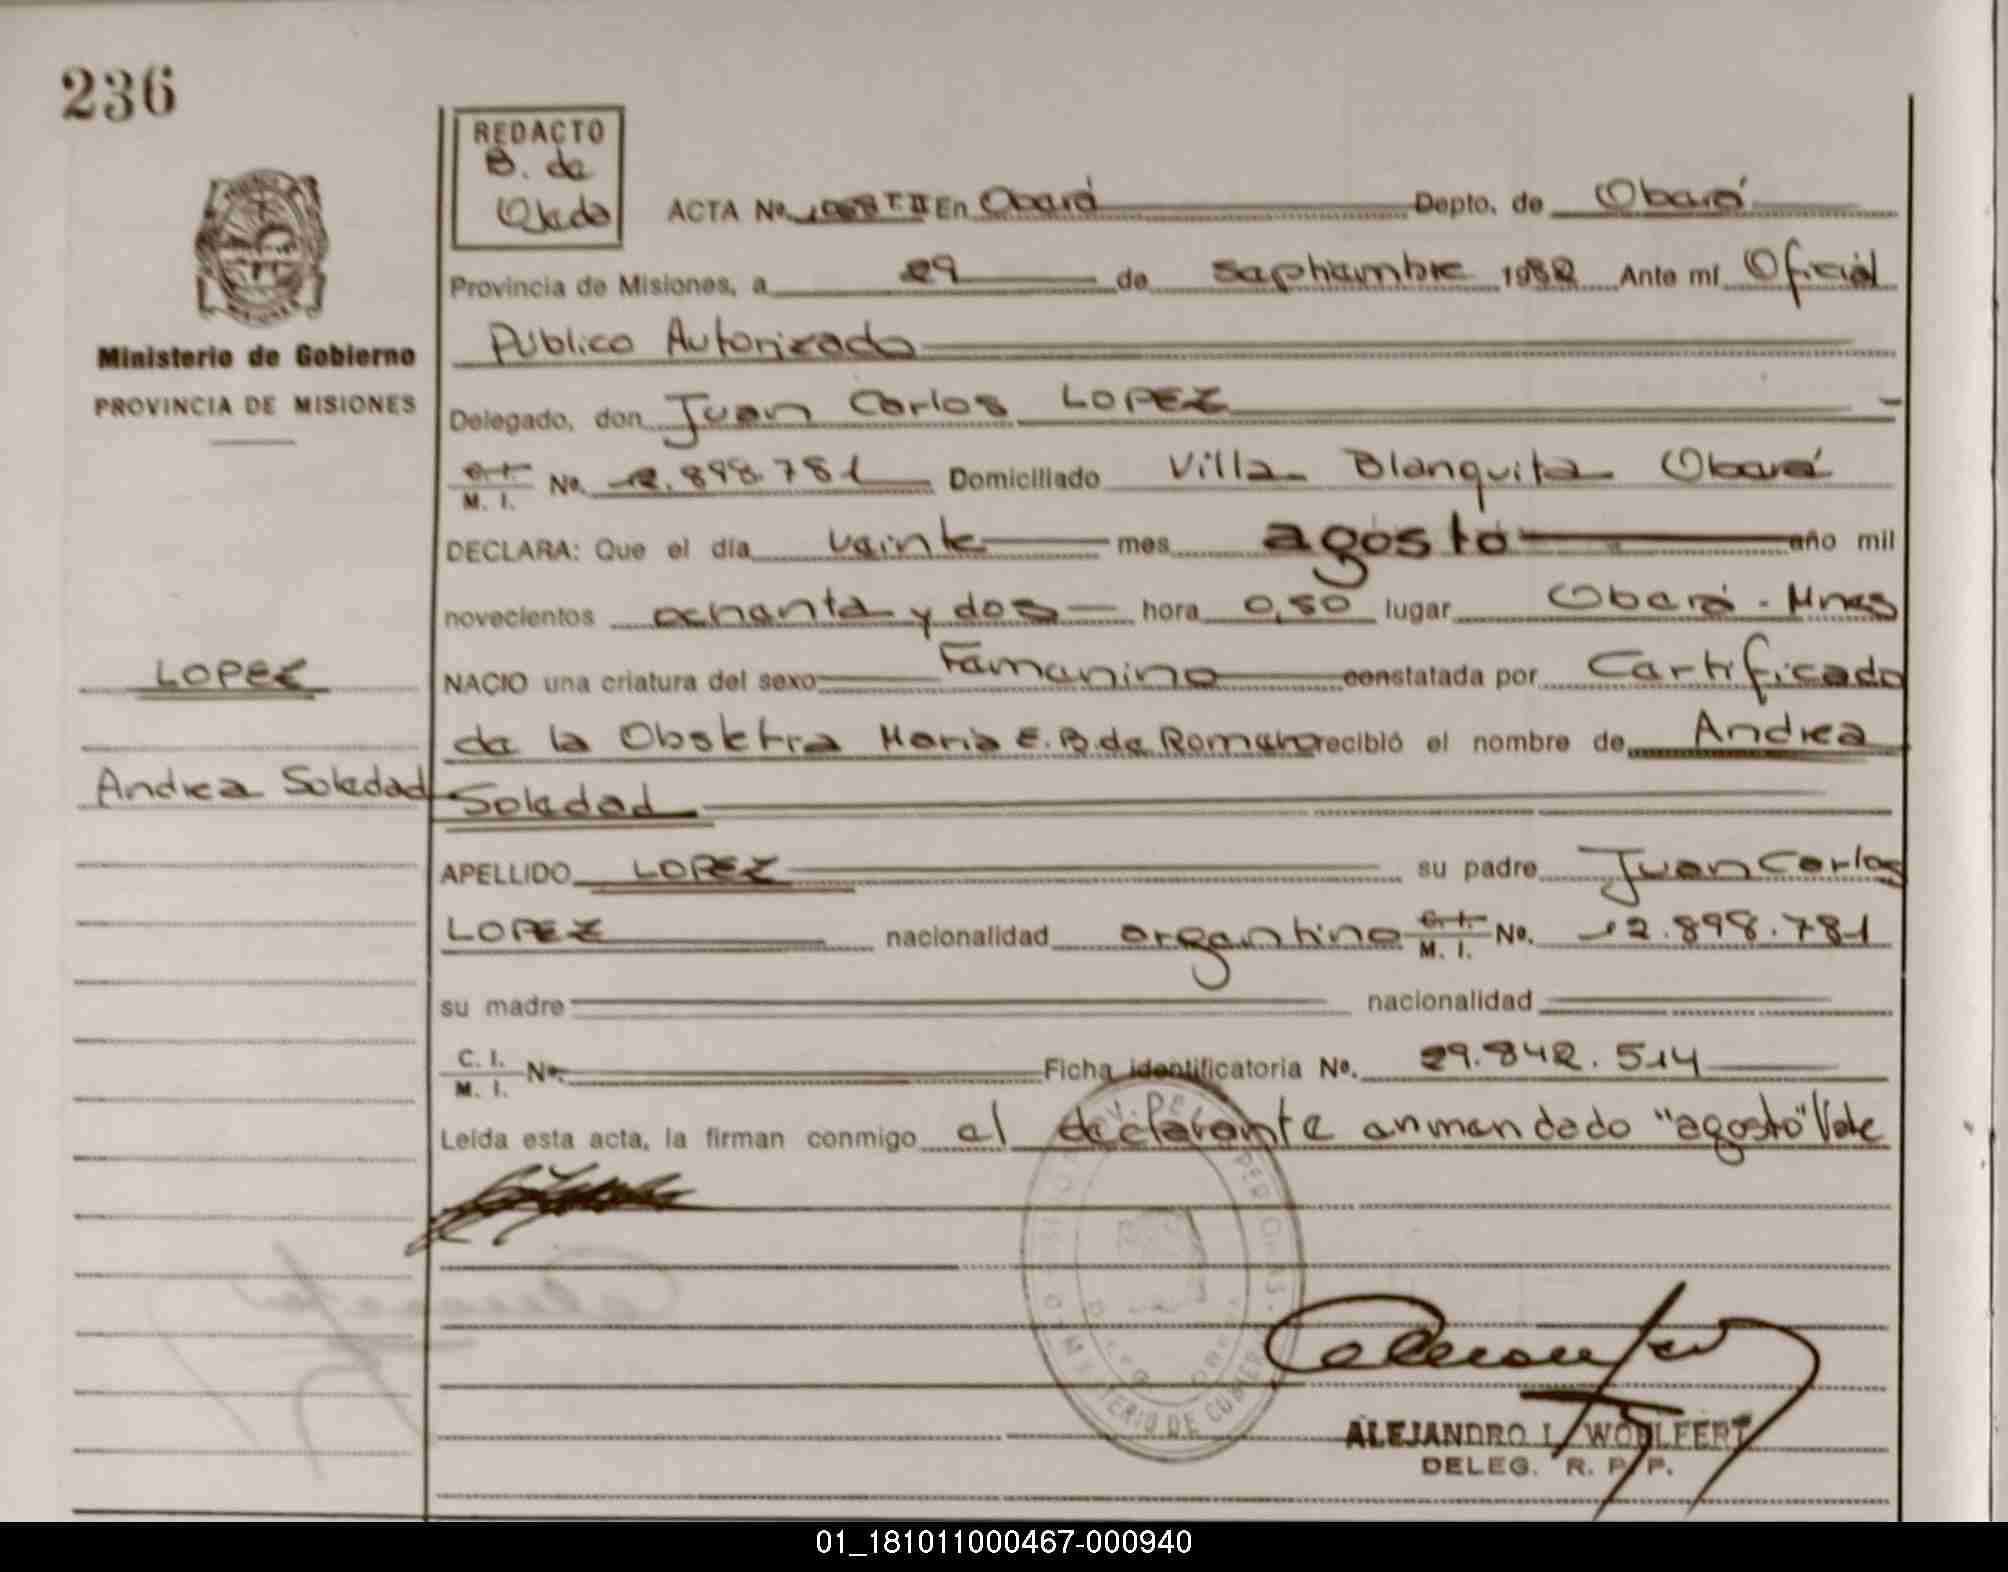 236
REDACTO
B. de
Ojeda
ACTA No. 1068 T II En Oberá Depto. de Oberá
Provincia de Misiones, a 29 de septiembre 1982 Ante mí Oficial
Publico Autorizado
Ministerio de Gobierno
PROVINCIA DE MISIONES
Delegado, don Juan Carlos LOPEZ
C. I. M. I. No. 12.898.781 Domiciliado Villa Blanquita Oberá
DECLARA: Que el día veinte mes agosto año mil
novecientos ochenta y dos hora 0,50 lugar Oberá - Mnes
LOPEZ
NACIO una criatura del sexo Femenino constatada por Certificado
de la Obstetra Maria E. B. de Romero recibió el nombre de Andrea
Andrea Soledad
Soledad
APELLIDO LOPEZ su padre Juan Carlos
LOPEZ nacionalidad argentino C. I. M. I. No. 12.898.781
su madre nacionalidad
C. I. M. I. No. Ficha identificatoria No. 29.842.514
Leída esta acta, la firman conmigo el declarante enmendado "agosto" Vale
MINISTERIO DE GOBIERNO
ALEJANDRO L. WOHLFERT
DELEG. R. P. P.
01_181011000467-000940